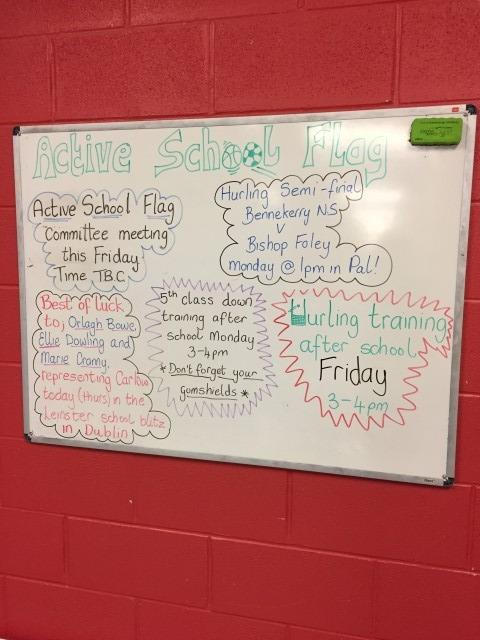 Active School Flag
Active School Flag
Committee meeting
this Friday
Time TBC
Hurling Semi-final
Bennekerry N.S
V
Bishop Foley
monday @ 1pm in Pal!
Best of luck
to; Orlagh Bowe,
Ellie Dowling and
Marie Cramy,
representing Carlow
today (thurs) in the
Leinster school blitz
in Dublin
5th class down
training after
school Monday
3-4pm
* Don't forget your
gumshields *
Hurling training
after school
Friday
3-4pm